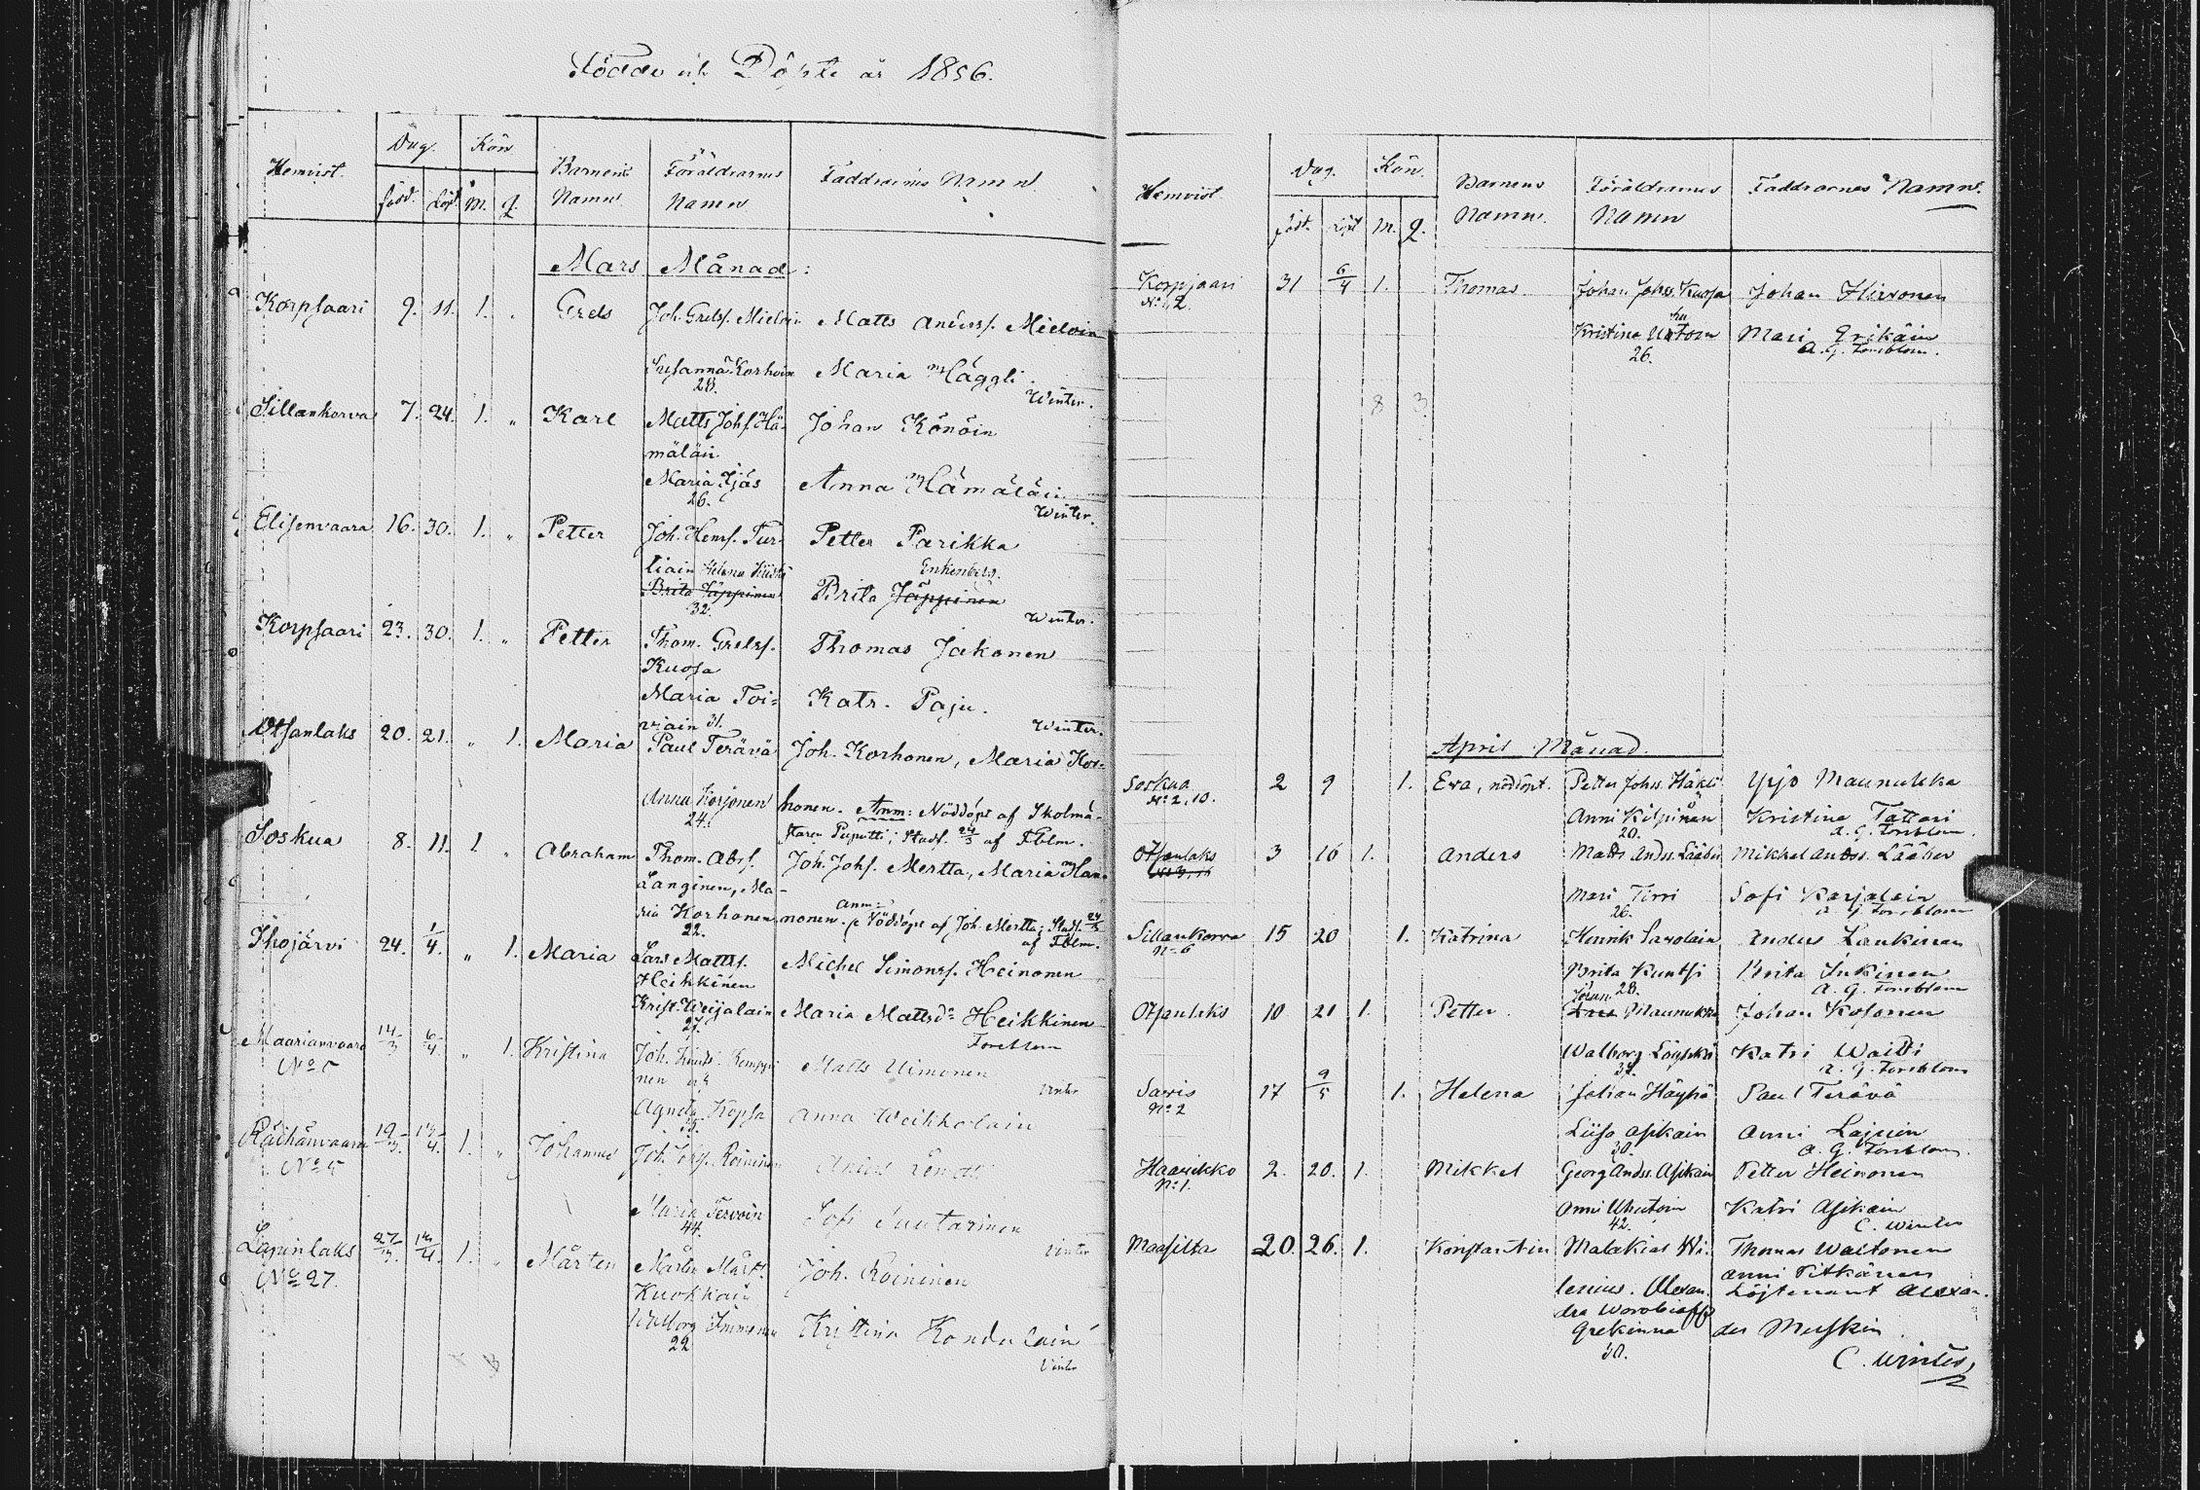 Födde och Döpte år 1856.
Hemvist. Dag. Kön Barnens Föräldrarnes Faddrarnes Namn
född. döpt m. q. Namn Namn
Mars Månad:
Korpsaari 9. 11. 1. Grels Joh. Grelss. Matts Anderss.
Susanna Maria
28. Winter.
Sillankorva 7. 24. 1. „ Karl Matts Johs. Hä- Johan Könöin
mäläin
Maria Ijäs Anna Hämäläin
26. Winter.
Elisenvaara 16. 30. 1. „ Petter Joh. Henrs. Tur- Petter Parikka
liain Helena Enkenberg.
Brita Jäppinen Brita Jäppinen
32. Winter.
Korpsaari 23. 30. 1. „ Petter Thom. Grelss. Thomas Jakonen
Kuosa
Maria Toi- Katr. Paju.
viain 31. Winter.
Otsanlaks 20. 21. „ 1. Maria Paul Terävä Joh. Korhonen, Maria Kor-
Anna Korjonen honen. Anm: Nöddöpt af Skolmä-
24. staren Puputti; Stadf. 24/3 af Fblm.
Soskua 8. 11. 1. „ Abraham Thom. Abrs. Joh. Johs. Mertta, Maria Han-
Langinen, Ma- Anm:
ria Korhonen nonen. Nöddöpt af Joh. Mertta; Stadf. 24/3
22. af Fblm.
Ihojärvi 24. 1/4. „ 1. Maria Lars Matts. Michel Simonss. Heinonen
Heikkinen
Krist. Weijalain Maria Mattsdr Heikkinen
27. Forsblom
Maarianvaara 14/3 6/4 „ 1. Kristina Joh. Matts Uimonen
No 5 nen Winter
Agneta Kopsa Anna Weikkolain
Räihänvaara 19/3. 13/4. 1. „ Johannes Joh. Johs. Roininen
No 5
Maria Tervoin Sofi Suutarinen
44. Winter
Lapinlaks 27/3. 13/4. 1. „ Mårten Mårten Mårts. Joh. Roininen
No 27. Kuokkain
Walborg Immonen Kristina Kondulain
22 Winter
Hemvist. Dag. Kön. Barnens Föräldrarnes Faddrarnes Namn.
född. döpt m. q. Namn. Namn
Korpsaari 31 6/4 1. Thomas Johan Johss. Kuosa Johan Hirvonen
No 2
Kristina Mari Erikäin
26. A. G. Forsblom.
8 3
April Månad.
Soskua 2 9 1. Eva, nöddöpt. Petter Johss. Häkli Yrjö Maunukka
No 2, 10.
Anni Kilpinen Kristina Tattari
20. A. G. Forsblom.
Otsanlaks 3 16 1. Anders Matts Andss. Lääber Mikkel Andss. Lääber
Mari Tirri Sofi Karjalain
26. A. G. Forsblom
Sillankorva 15 20 1. Katrina Henrik Savolain Anders Laukinen
No 6
Brita Kuntsi Brita Inkinen
28. A. G. Forsblom
Otsanlaks 10 21 1. Petter Johan Lars Maunukka Johan Kosonen
Walborg Katri Waitti
34. A. G. Forsblom
Savis 17 9/5 1. Helena Johan Häyhä Paul Terävä
No 2
Liisa Asikain Anni Lajuin
30. A. G. Forsblom.
Haarikko 2. 20. 1. Mikkel Georg Andss. Asikain Petter Heinonen
No 1.
Anni Katri Asikain
42. C. Winter
Maasilta 20. 26. 1. Konstantin Malakias Wi- Thomas Waitonen
Anni Pitkänen
lenius. Alexan- Löjtenant Alexan-
dra Worobieff
Grekinna der Muskin
30. C. Winter